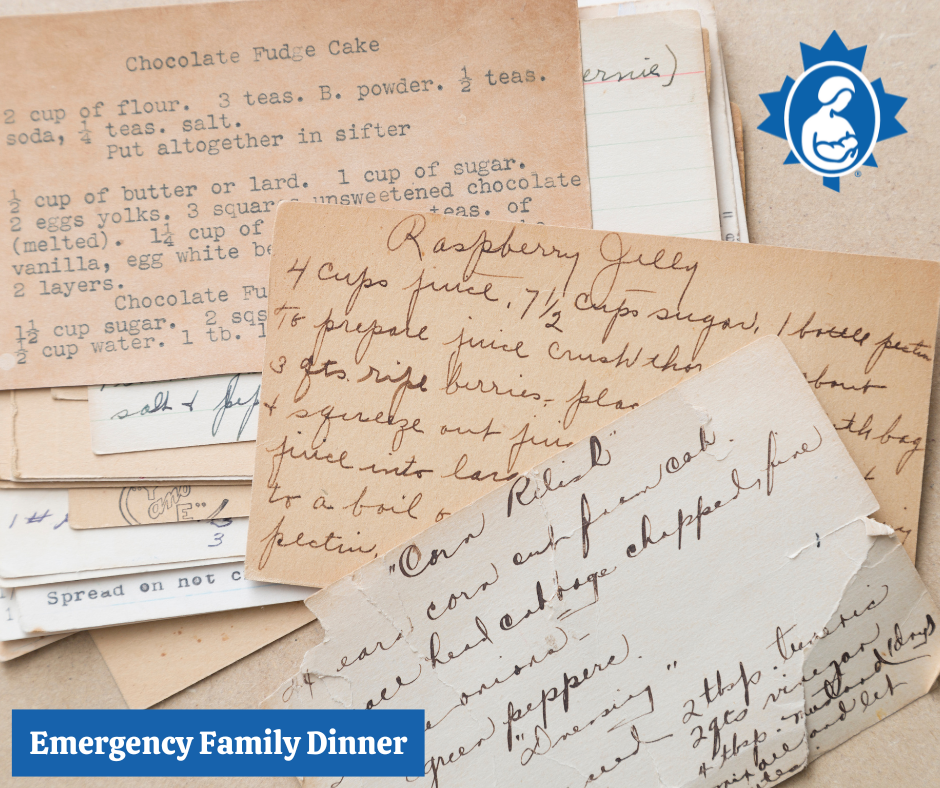 Chocolate Fudge Cake
2 cup of flour. 3 teas. B. powder. ½ teas.
soda, ¼ teas. salt.
Put altogether in sifter
½ cup of butter or lard. 1 cup of sugar.
2 eggs yolks. 3 squar unsweetened chocolate
(melted). 1¼ cup of teas. of
vanilla, egg white be
2 layers.
Chocolate Fu
1½ cup sugar. 2 sqs
½ cup water. 1 tb.
ernie)
Raspberry Jelly
4 cups juice, 7½ cups sugar, 1 bottle pectin
To prepare juice crush thor about
3 qts. ripe berries, plac
+ squeeze out jui th bag
juice into larg
to a boil
pectin.
salt + pep
Spread on not c
"Corn Relish"
ears corn cut from cob.
head cabbage chopped fine
onions
green peppers.
"Dressing"
2 tbsp. tumeric
2 qts vinegar
4 tbsp. mustard
mix all and let
®
Emergency Family Dinner